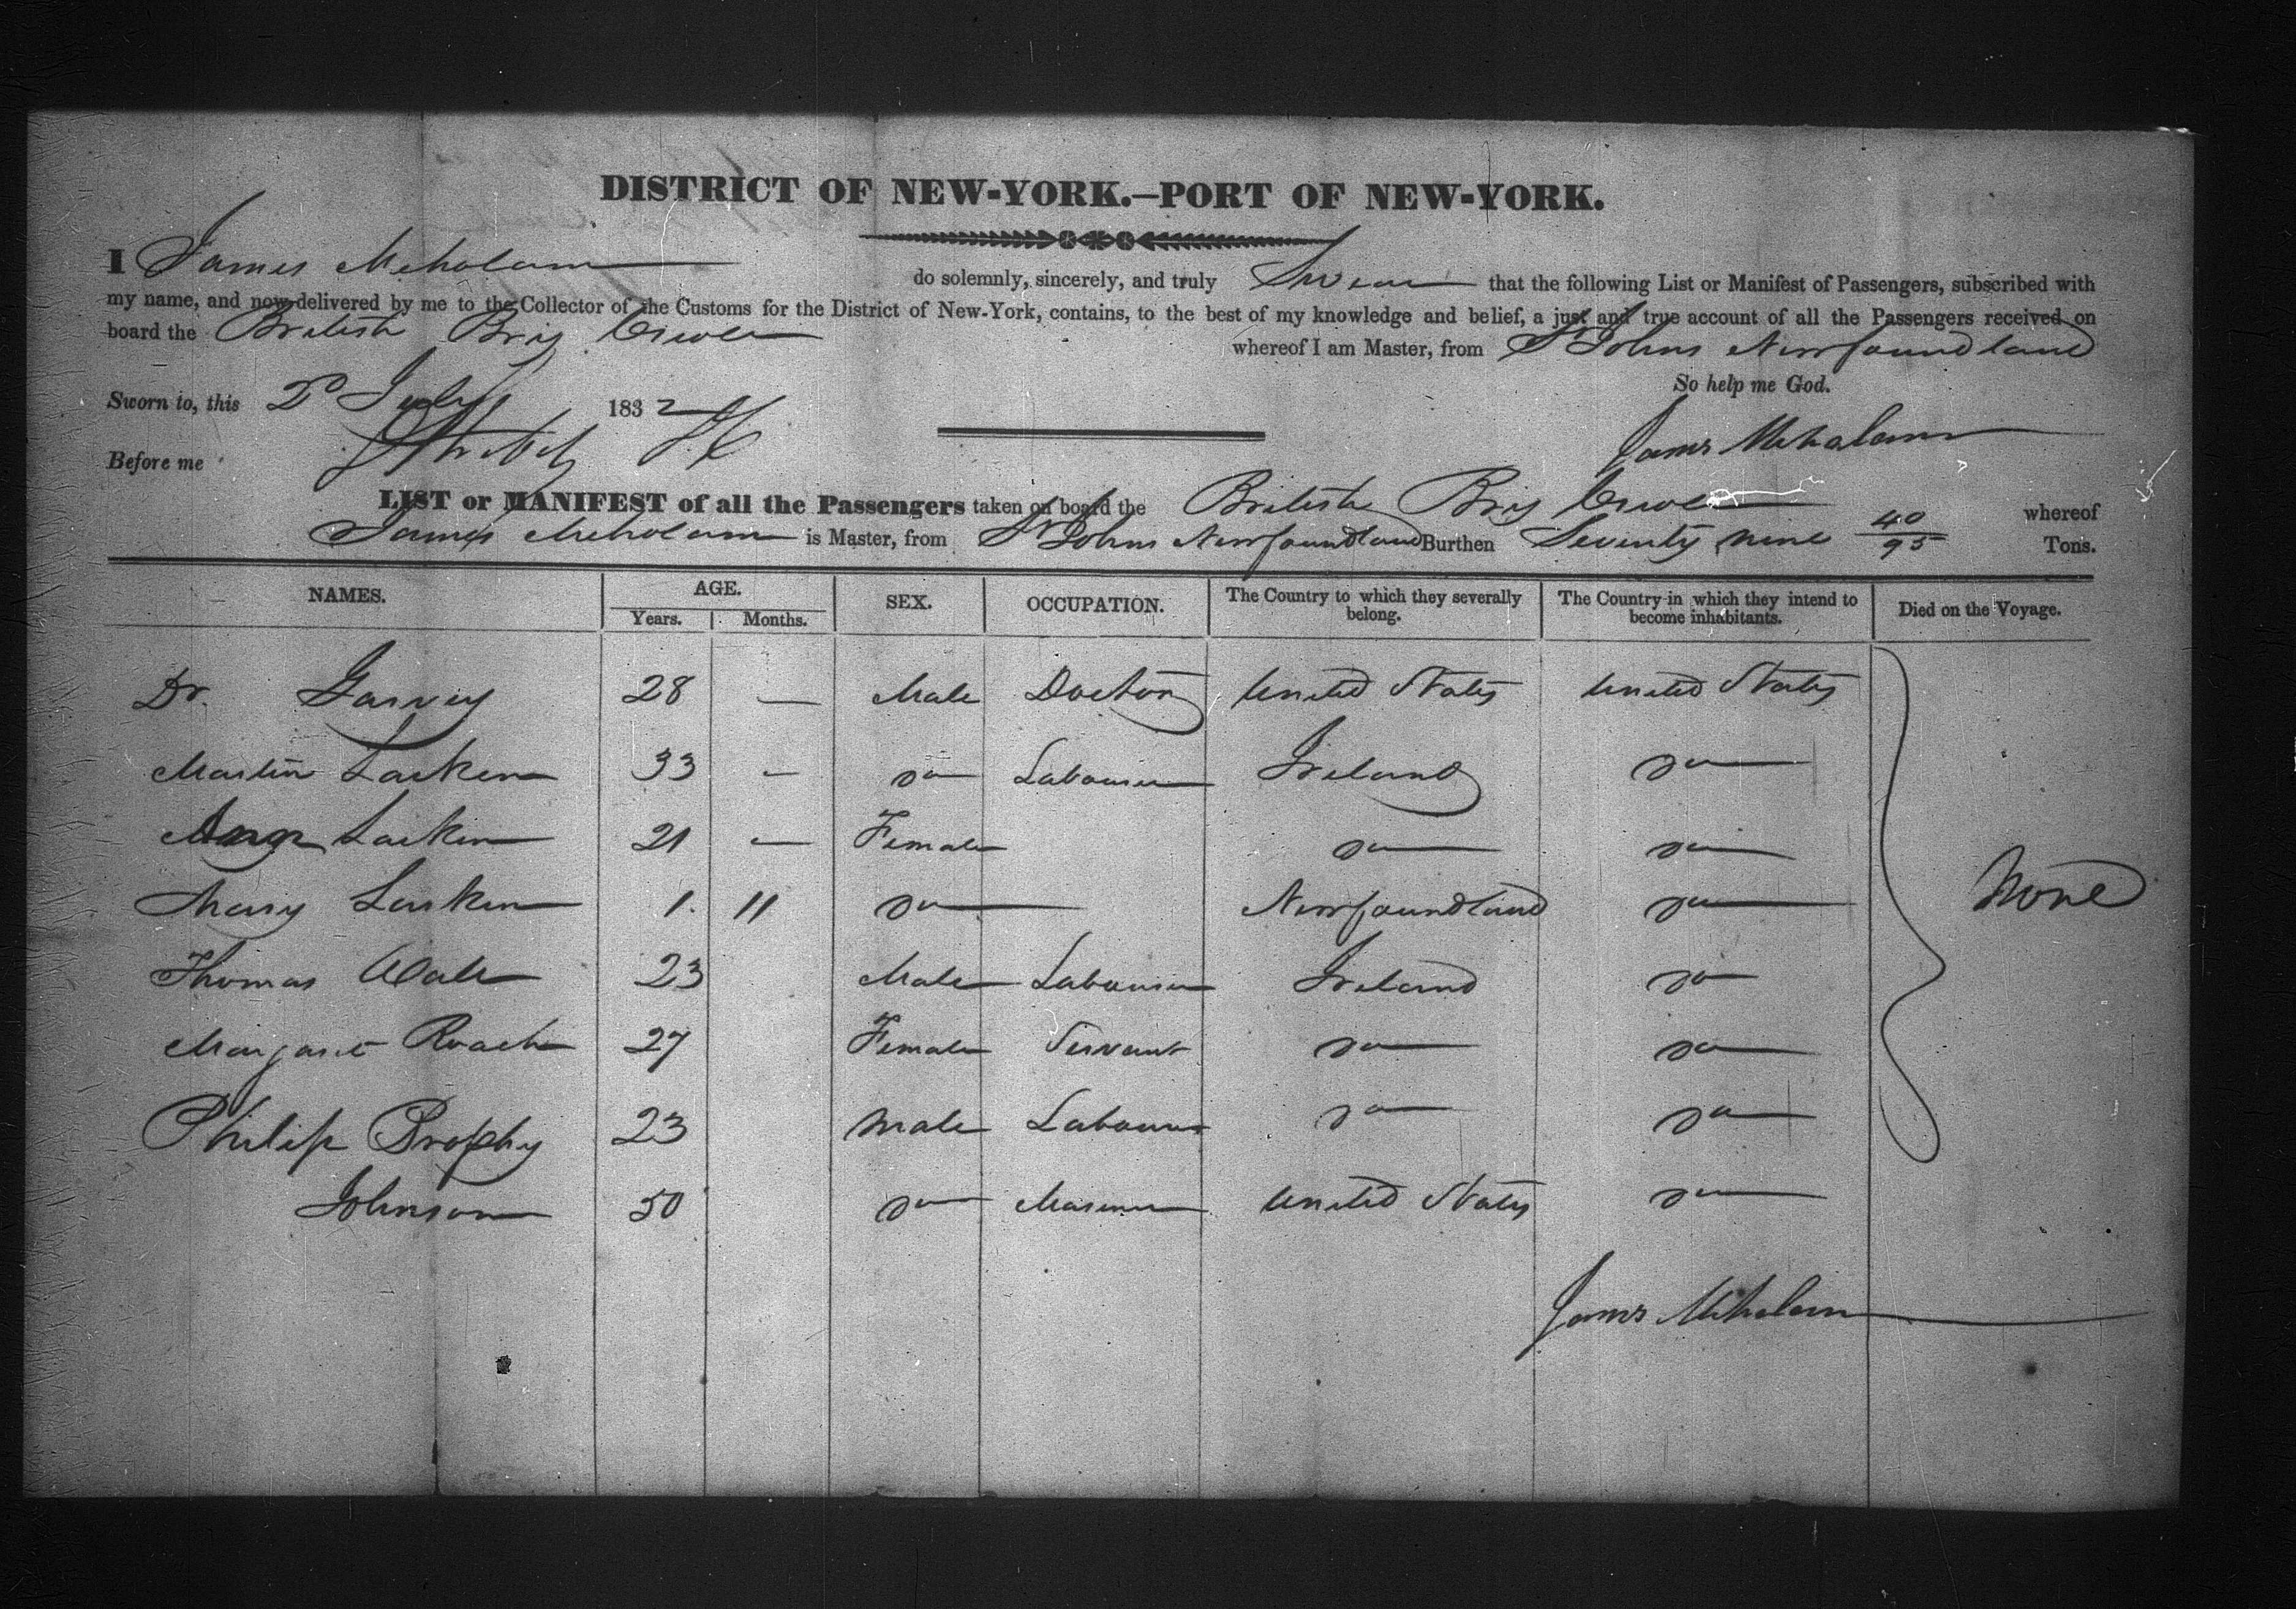 DISTRICT OF NEW-YORK.–PORT OF NEW-YORK.
I James do solemnly, sincerely, and truly Swear that the following List or Manifest of Passengers, subscribed with
my name, and now delivered by me to the Collector of the Customs for the District of New-York, contains, to the best of my knowledge and belief, a just and true account of all the Passengers received on
board the British Brig whereof I am Master, from St Johns Newfoundland
So help me God.
Sworn to, this 2d July 1832
James
Before me
LIST or MANIFEST of all the Passengers taken on board the British Brig whereof
James is Master, from St Johns Newfoundland Burthen Seventy nine 40/95 Tons.
NAMES. AGE. SEX. OCCUPATION. The Country to which they severally belong. The Country in which they intend to become inhabitants. Died on the Voyage.
Years. Months.
Dr. Garvey 28 — Male Doctor United States United States
Martin Larken 33 — Do Labourer Ireland Do
Larken 21 — Female Do Do
Mary Larken 1. 11 Do Newfoundland Do None
Thomas Wale 23 Male Labourer Ireland Do
Margaret Roach 27 Female Servant Do Do
Philip Brophy 23 Male Labourer Do Do
Johnson 50 Do Mariner United States Do
James